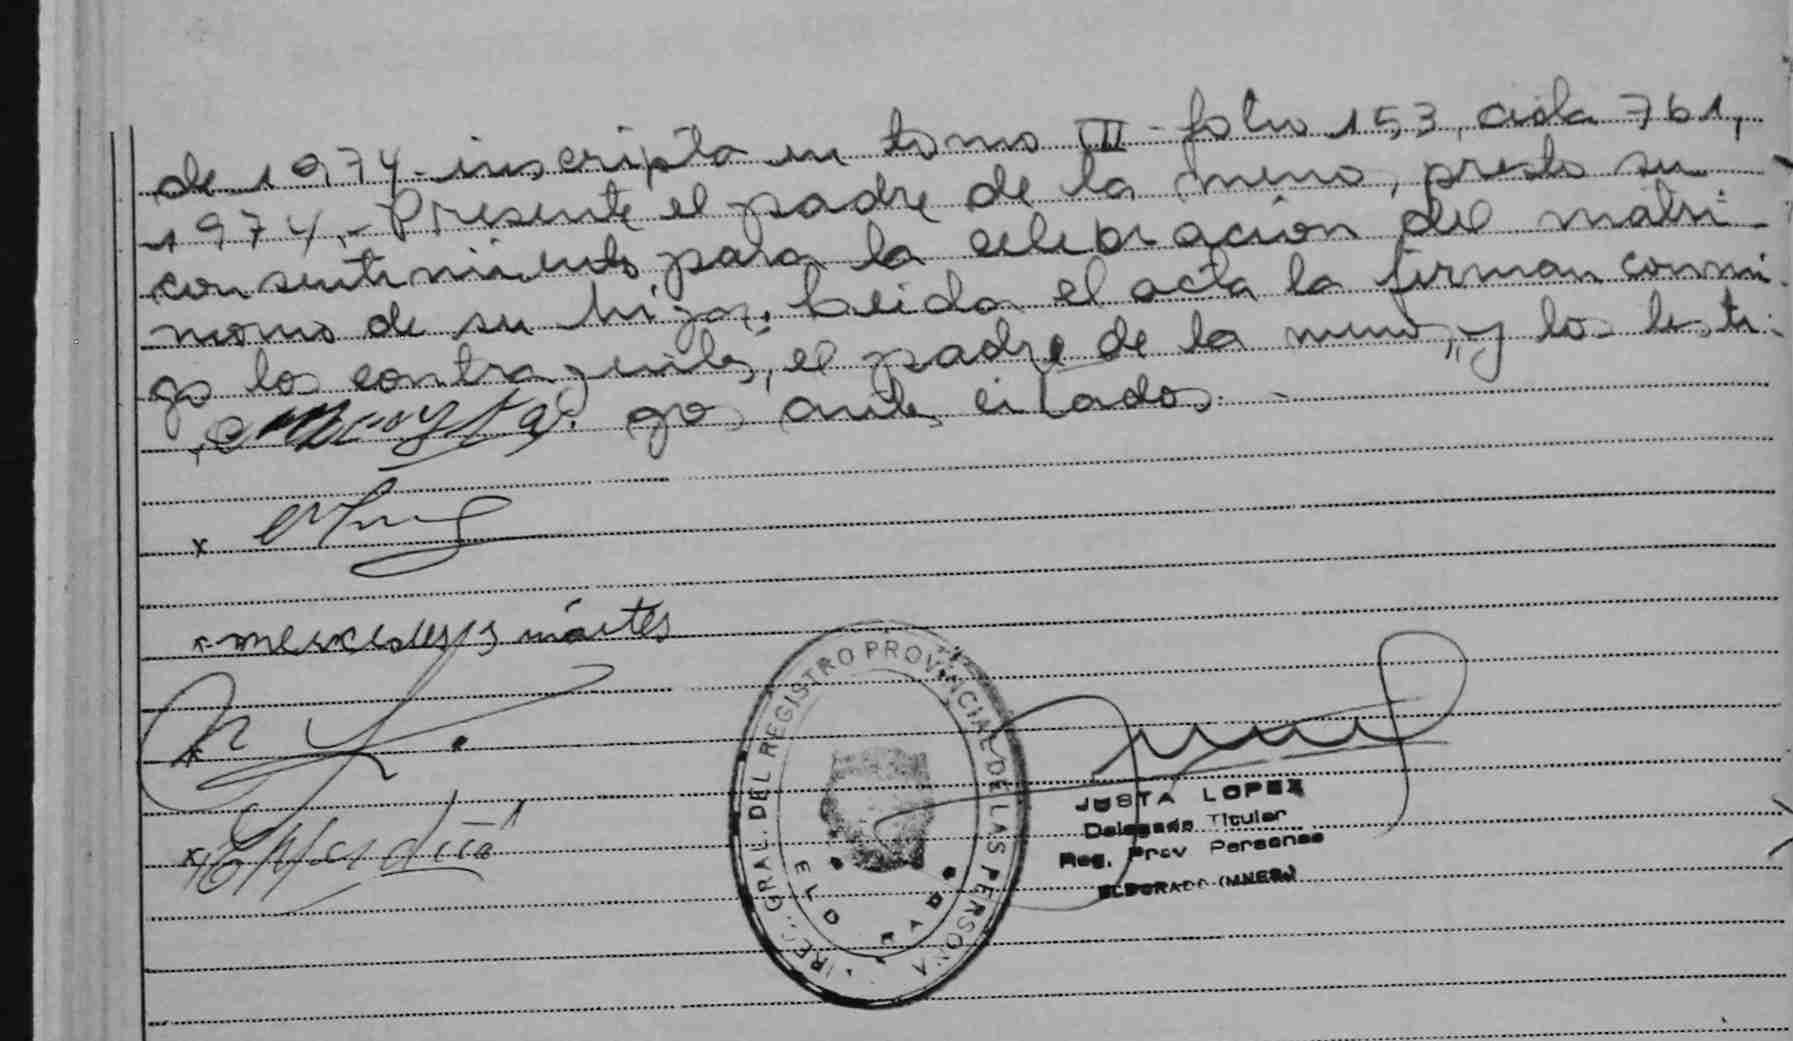 de 1974 - inscripta en tomo III - folio 153, acta 761,
1974.- Presente el padre de la menor, presta su
consentimiento para la celebración del matri-
monio de su hija. Leida el acta la firman conmi-
go los contrayentes, el padre de la menor, y los testi-
gos antes citados. -
x
x mercedes B márтes
x
DIREC. GRAL. DEL REGISTRO PROVINCIAL DE LAS PERSONAS
ELDORADO
JUSTA LOPEZ
Delegada Titular
Reg. Prov Personas
ELDORADO (MNES.)